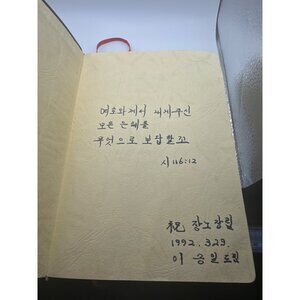 여호와께서 내게주신
모든 은혜를
무엇으로 보답할꼬
시 116:12
祝 장노장립
1992. 3.29.
이 승일 드림